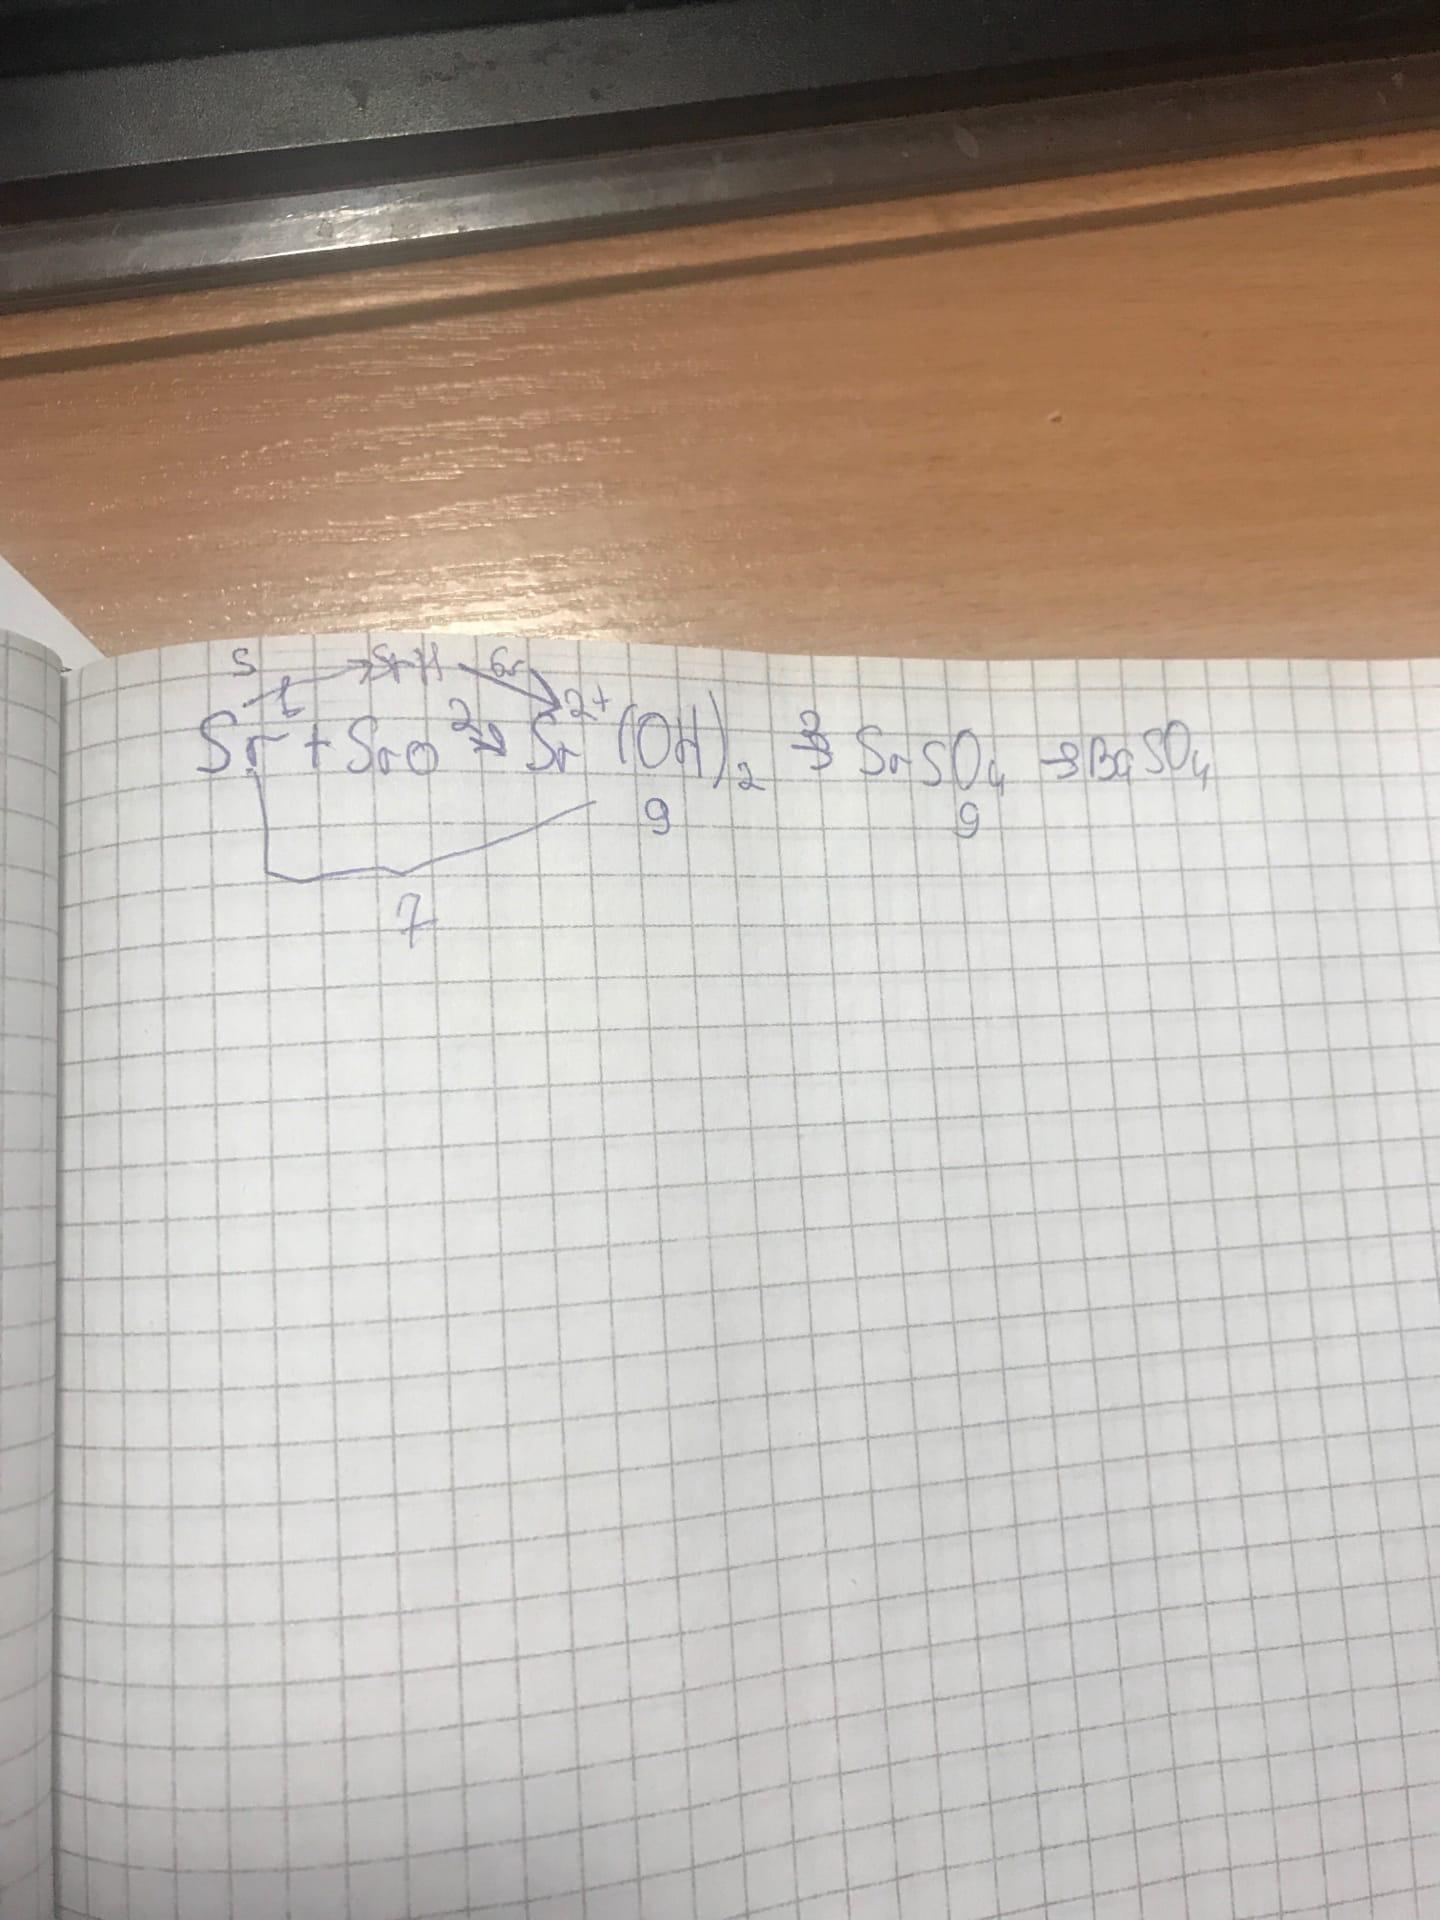 5 → SrH 6
Sr 1 → SrO 2 → Sr²⁺(OH)₂ 3 → SrSO₄ → BaSO₄
9 9
7